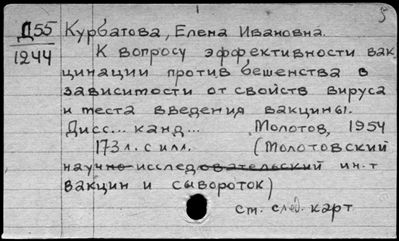 5
Д55 Курбатова, Елена Ивановна.
1244 К вопросу эффективности вак-
цинации против бешенства в
зависитости от свойств вируса
и теста введения вакцины.
Дисс... канд... Молотов, 1954
173 л. с илл. (Молотовский
научно-исследовательский ин-т
вакцин и сывороток)
ст. след. карт